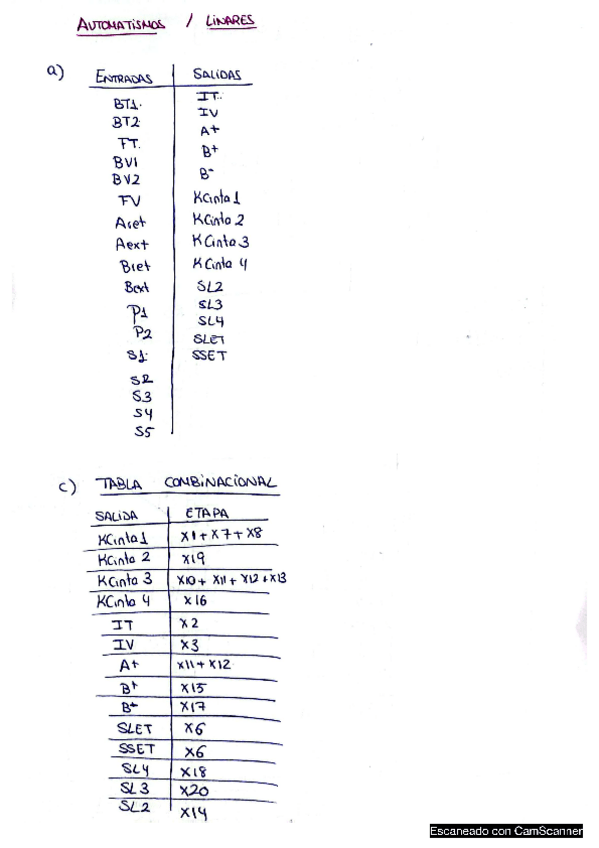 AUTOMATISMOS / LINARES
a) ENTRADAS SALIDAS
BT1. IT.
BT2 IV
FT. A+
BV1 B+
BV2 B-
FV KCinta 1
Aret KCinta 2
Aext KCinta 3
Bret KCinta 4
Bext SL2
P1 SL3
P2 SL4
S1. SLET
S2 SSET
S3
S4
S5
c) TABLA COMBINACIONAL
SALIDA ETAPA
KCinta 1 X1+X7+X8
KCinta 2 X19
KCinta 3 X10+ X11+ X12+X13
KCinta 4 X16
IT X2
IV X3
A+ X11+X12
B+ X15
X17
SLET X6
SSET X6
SL4 X18
SL3 X20
SL2 X14
Escaneado con CamScanner